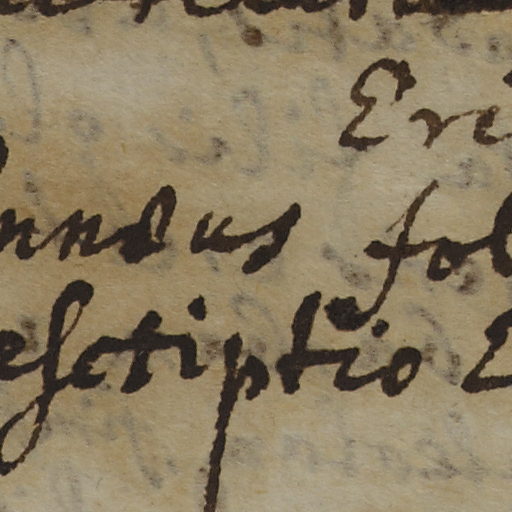 Eri
nndus fol
esctiptio E